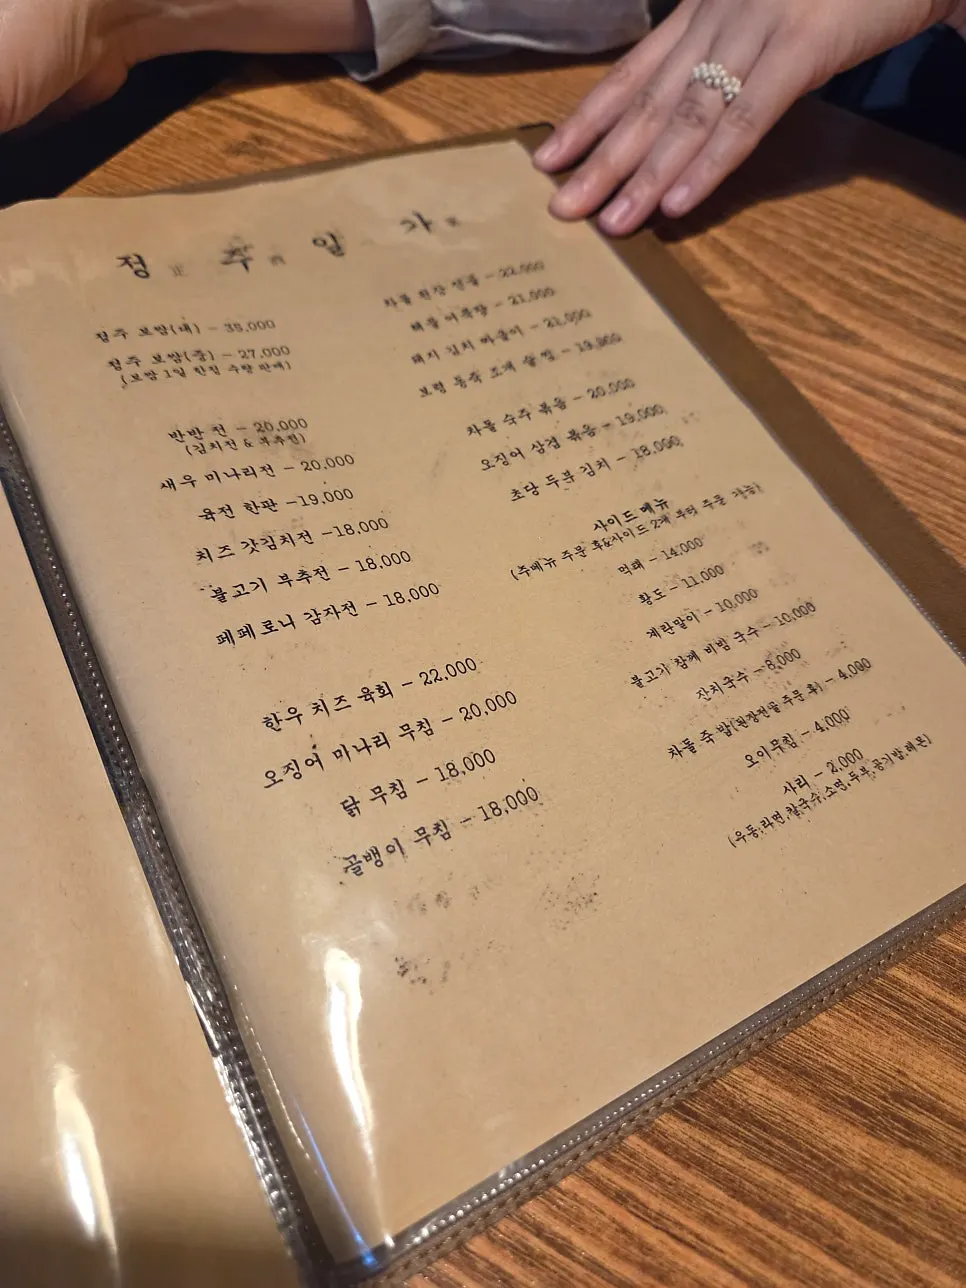 정 正 주 酒 일 가 家
정주 보쌈(대) - 38,000
정주 보쌈(중) - 27,000
(보쌈 1일 한정 수량 판매)
반반 전 - 20,000
(김치전 & 부추전)
새우 미나리전 - 20,000
육전 한판 -19,000
치즈 갓김치전 -18,000
불고기 부추전 - 18,000
페페로니 감자전 - 18,000
한우 치즈 육회 - 22,000
오징어 미나리 무침 - 20,000
닭 무침 - 18,000
골뱅이 무침 - 18,000
차돌 된장 전골 - 22,000
해물 어묵탕 - 21,000
돼지 김치 짜글이 - 21,000
보령 동죽 조개 술찜 - 19,000
차돌 숙주 볶음 - 20,000
오징어 삼겹 볶음 - 19,000
초당 두부 김치 - 18,000
사이드 메뉴
(주메뉴 주문 후&사이드 2개 부터 주문 가능)
먹태 - 14,000
황도 - 11,000
계란말이 - 10,000
불고기 참깨 비빔 국수 - 10,000
잔치국수 - 8,000
차돌 죽 밥(된장전골 주문 후) - 4,000
오이무침 - 4,000
사리 - 2,000
(우동,라면,칼국수,소면,두부,공기밥,레몬)